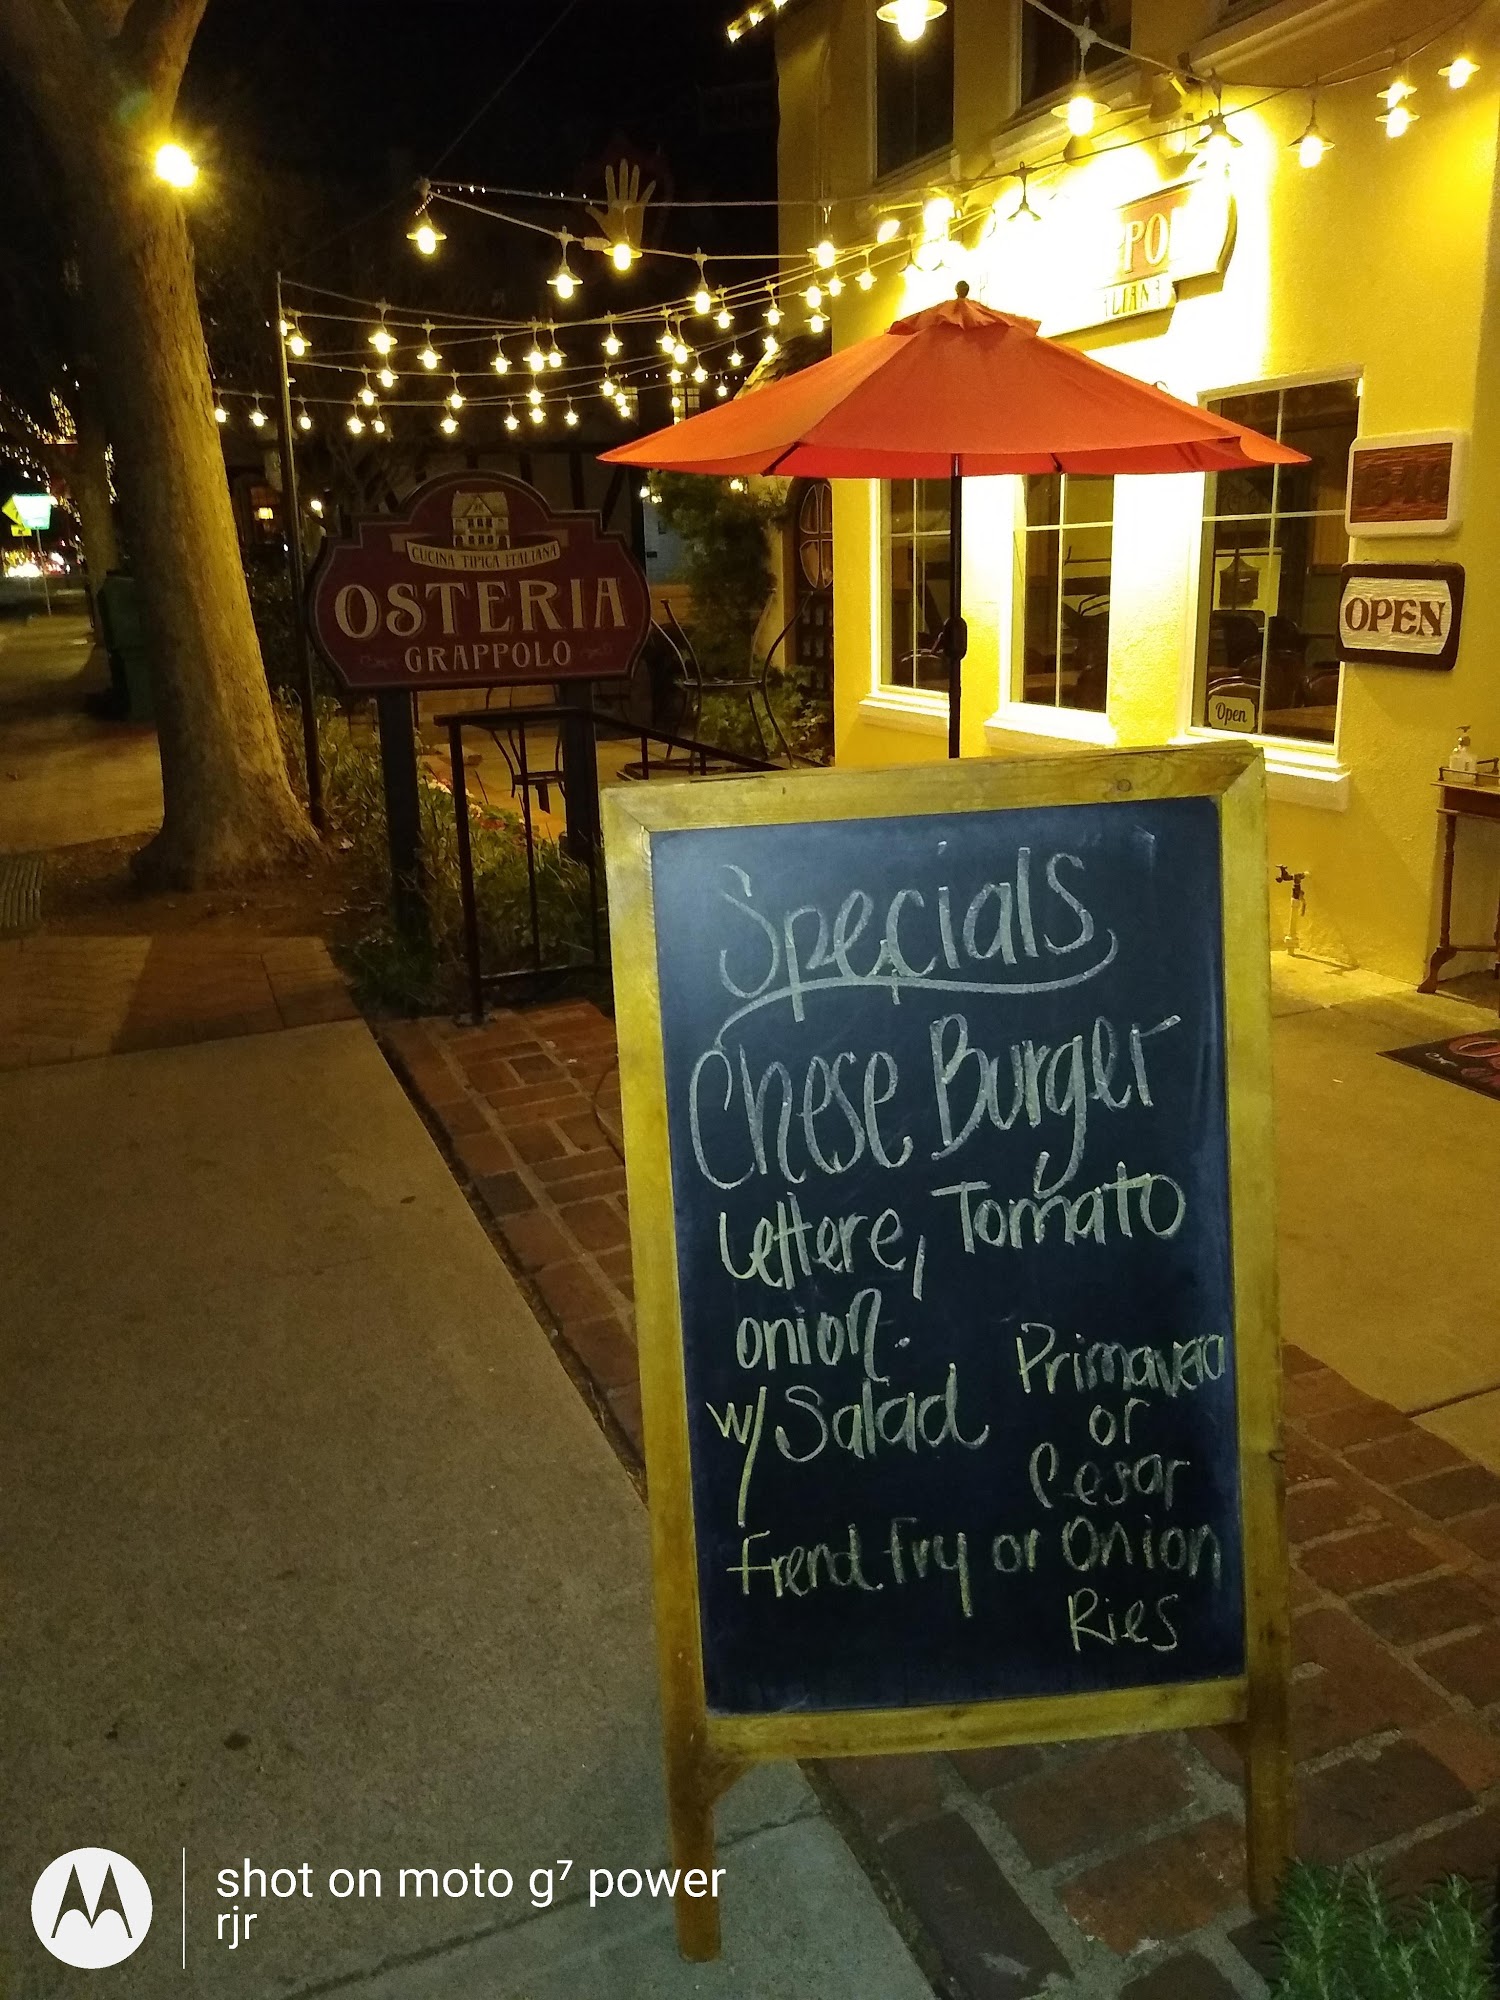 PPO
LIANA
CUCINA TIPICA ITALIANA
OSTERIA
GRAPPOLO
OPEN
Open
Specials
Chese Burger
Lettere, Tomato
onion.
w/ Salad Primavera
or
Cesar
Frend Fry or Onion
Ries
shot on moto g⁷ power
rjr